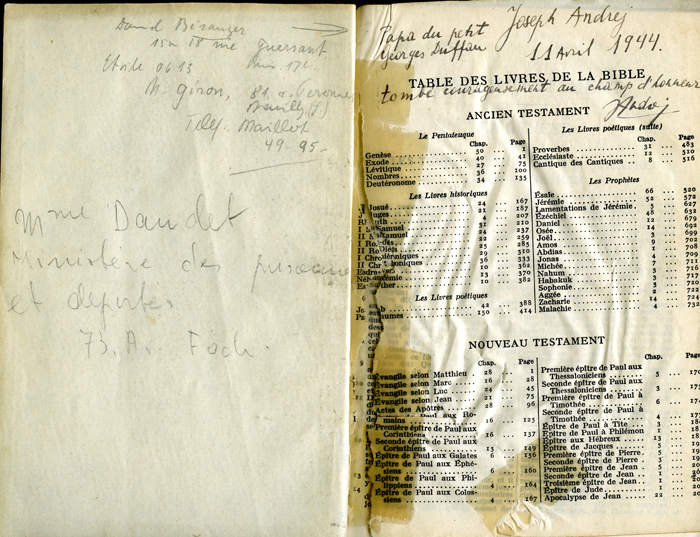 David Béranger
15 a 18 rue Guersant
Etoile 06 13 Paris 17e
M. Giron, 81
Neuilly (S)
Tel. Maillot
49-95-
Mme Daudet
Ministère des prisonniers
et déportés
73. A. Foch.
Papa du petit Joseph Andrej
Georges
11 Avril 1944.
TABLE DES LIVRES DE LA BIBLE
tombé courageusement au champ d'honneur
ANCIEN TESTAMENT
Le Pentateuque
Chap. Page
Genèse 50 1
Exode 40 41
Lévitique 27 75
Nombres 36 100
Deutéronome 34 135
Les Livres historiques
Josué 24 167
Juges 21 187
4 207
I 31 210
II 24 237
I Ro 22 259
II Ro 25 285
I Chroniques 29 311
II Chroniques 36 333
10 362
13 370
10 382
Les Livres poétiques
42 388
150 414
Les Livres poétiques (suite)
Chap. Page
Proverbes 31 483
Ecclésiaste 12 510
Cantique des Cantiques 8 516
Les Prophètes
Ésaïe 66 527
Jérémie 52 572
Lamentations de Jérémie 5 627
Ézéchiel 48 633
Daniel 12 679
Osée 14 692
Joël 3 699
Amos 9 702
Abdias 1 708
Jonas 4 709
Michée 7 711
Nahum 3 716
Habakuk 3 717
Sophonie 3 720
Aggée 2 722
Zacharie 14 724
Malachie 4 732
NOUVEAU TESTAMENT
Chap. Page
Évangile selon Matthieu 28 1
Évangile selon Marc 16 28
Évangile selon Luc 24 45
Évangile selon Jean 21 75
Actes des Apôtres 28 96
de Paul aux Ro-
mains 16 125
Première épître de Paul aux
Corinthiens 16 137
Seconde épître de Paul aux
Corinthiens 13 149
Épître de Paul aux Galates 6 156
Épître de Paul aux Éphé-
siens 6 160
Épître de Paul aux Phi-
lippiens 4 164
Épître de Paul aux Colos-
siens 4 167
Chap. Page
Première épître de Paul aux
Thessaloniciens 5
Seconde épître de Paul aux
Thessaloniciens 3
Première épître de Paul à
Timothée 6
Seconde épître de Paul à
Timothée 4
Épître de Paul à Tite 3
Épître de Paul à Philémon 1
Épître aux Hébreux 13
Épître de Jacques 5
Première épître de Pierre 5
Seconde épître de Pierre 3
Première épître de Jean 5
Seconde épître de Jean 1
Troisième épître de Jean 1
Épître de Jude 1
Apocalypse de Jean 22